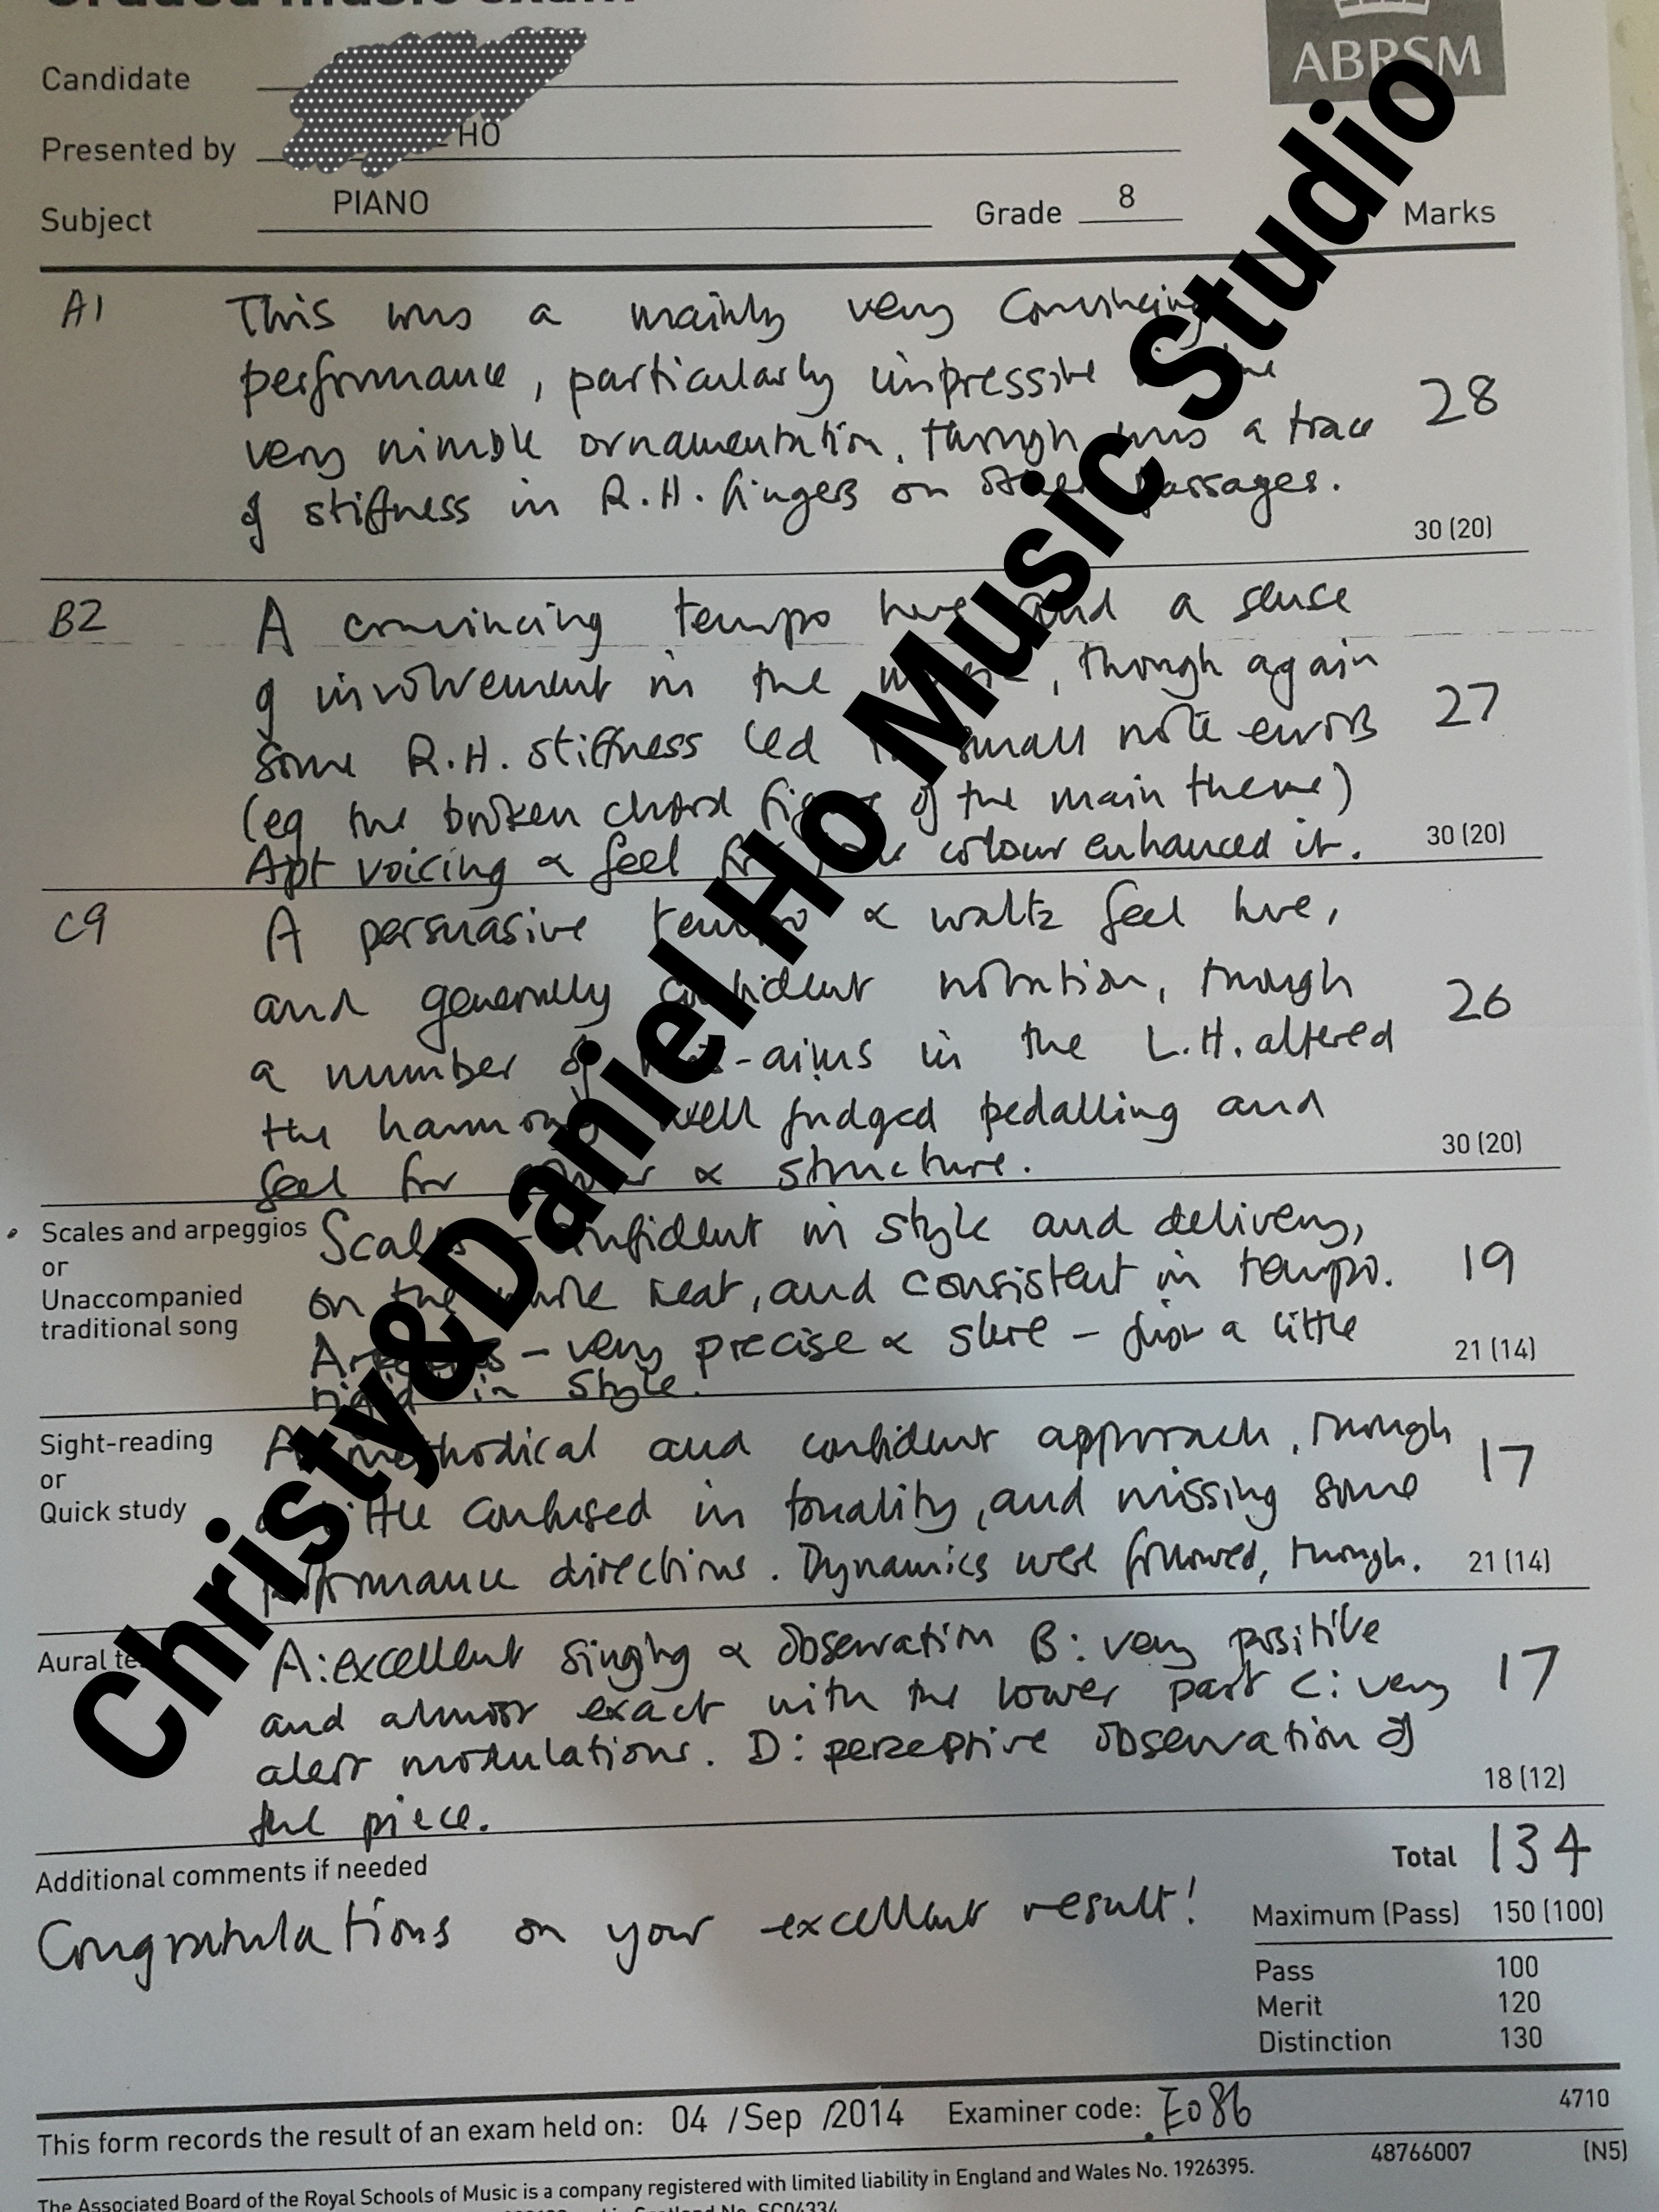 ABRSM
Candidate
Presented by HO
Subject PIANO Grade 8 Marks
A1 This was a mainly very convincing
performance, particularly impressive
very nimble ornamentation, though was a trace 28
of stiffness in R.H. fingers on other passages.
30 (20)
B2 A convincing tempo here and a sense
of involvement in the music, though again
some R.H. stiffness led to small note errors 27
(eg the broken chord figure of the main theme)
Apt voicing & feel for colour enhanced it. 30 (20)
C9 A persuasive tempo & waltz feel here,
and generally confident notation, though 26
a number of mis-aims in the L.H. altered
the harmony well judged pedalling and
feel for & structure. 30 (20)
Scales and arpeggios
or
Unaccompanied
traditional song
Scales - confident in style and delivery,
on the whole neat, and consistent in tempo. 19
Arpeggios - very precise & sure - just a little
rigid in style. 21 (14)
Sight-reading
or
Quick study
A methodical and confident approach, though 17
a little confused in tonality, and missing some
performance directions. Dynamics were followed, though. 21 (14)
Aural
A: excellent singing & observation B: very positive
and almost exact with the lower part C: very 17
alert modulations. D: perceptive observation of
the piece. 18 (12)
Additional comments if needed Total 134
Congratulations on your excellent result!
Maximum (Pass) 150 (100)
Pass 100
Merit 120
Distinction 130
This form records the result of an exam held on: 04 /Sep /2014 Examiner code: E086 4710
48766007 (N5)
The Associated Board of the Royal Schools of Music is a company registered with limited liability in England and Wales No. 1926395.
Christy&Daniel Ho Music Studio